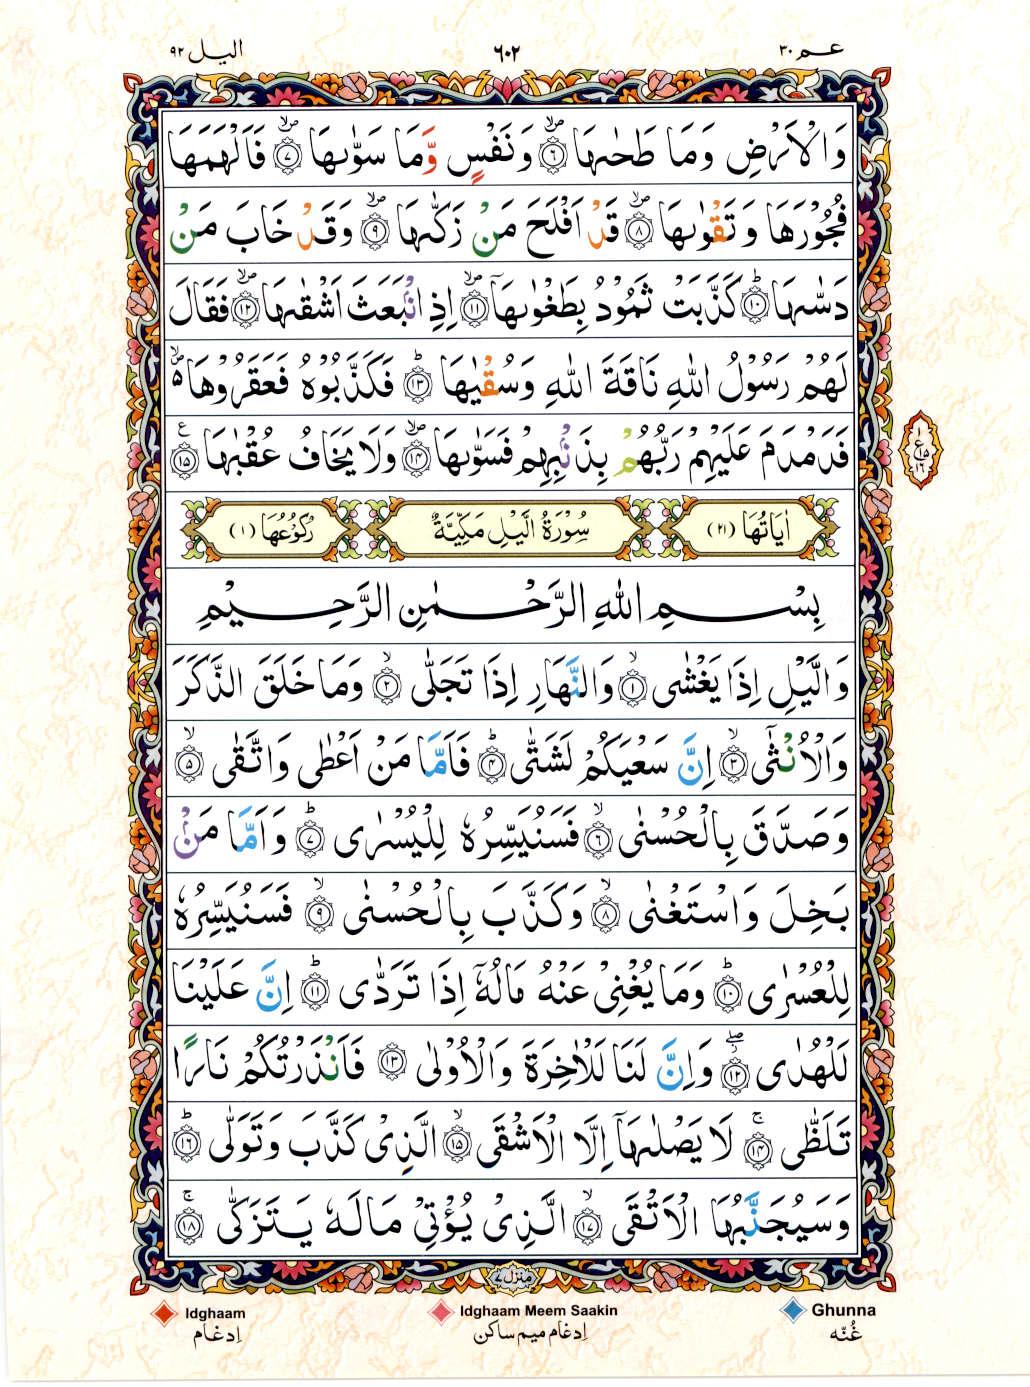 عم ٣٠ ٦٠٢ اليل ٩٢
وَالْاَرْضِ وَمَا طَحٰىهَا ۪ۙ‏ ﴿۶﴾ وَنَفْسٍ وَّمَا سَوّٰىهَا ۪ۙ‏ ﴿۷﴾ فَاَلْهَمَهَا
فُجُوْرَهَا وَتَقْوٰىهَا ۪ۙ‏ ﴿۸﴾ قَدْ اَفْلَحَ مَنْ زَكّٰىهَا ۪ۙ‏ ﴿۹﴾ وَقَدْ خَابَ مَنْ
دَسّٰىهَا ؕ‏ ﴿۱۰﴾ كَذَّبَتْ ثَمُوْدُ بِطَغْوٰىهَاۤ ۪ۙ‏ ﴿۱۱﴾ اِذِ انْۢبَعَثَ اَشْقٰىهَا ۪ۙ‏ ﴿۱۲﴾ فَقَالَ
لَهُمْ رَسُوْلُ اللّٰهِ نَاقَةَ اللّٰهِ وَسُقْيٰهَا ؕ‏ ﴿۱۳﴾ فَكَذَّبُوْهُ فَعَقَرُوْهَا ۪ۙ ۵
فَدَمْدَمَ عَلَيْهِمْ رَبُّهُمْ بِذَنْۢبِهِمْ فَسَوّٰىهَا ۪ۙ‏ ﴿۱۴﴾ وَلَا يَخَافُ عُقْبٰهَا ﴿۱۵﴾ ع
١ ع ١٥ ١٦
اٰيَاتُهَا (٢١) سُوْرَةُ الَّيْلِ مَكِّيَّةٌ رُكُوْعُهَا (١)
بِسْمِ اللّٰهِ الرَّحْمٰنِ الرَّحِيْمِ
وَالَّيْلِ اِذَا يَغْشٰى ۙ‏ ﴿۱﴾ وَالنَّهَارِ اِذَا تَجَلّٰى ۙ‏ ﴿۲﴾ وَمَا خَلَقَ الذَّكَرَ
وَالْاُنْثٰٓى ۙ‏ ﴿۳﴾ اِنَّ سَعْيَكُمْ لَشَتّٰى ؕ‏ ﴿۴﴾ فَاَمَّا مَنْ اَعْطٰى وَاتَّقٰى ۙ‏ ﴿۵﴾
وَصَدَّقَ بِالْحُسْنٰى ۙ‏ ﴿۶﴾ فَسَنُيَسِّرُهٗ لِلْيُسْرٰى ؕ‏ ﴿۷﴾ وَاَمَّا مَنْۢ
بَخِلَ وَاسْتَغْنٰى ۙ‏ ﴿۸﴾ وَكَذَّبَ بِالْحُسْنٰى ۙ‏ ﴿۹﴾ فَسَنُيَسِّرُهٗ
لِلْعُسْرٰى ؕ‏ ﴿۱۰﴾ وَمَا يُغْنِىْ عَنْهُ مَالُهٗۤ اِذَا تَرَدّٰى ؕ‏ ﴿۱۱﴾ اِنَّ عَلَيْنَا
لَلْهُدٰى ۖ ‏ ﴿۱۲﴾ وَاِنَّ لَنَا لَلْاٰخِرَةَ وَالْاُوْلٰى‏ ﴿۱۳﴾ فَاَنْذَرْتُكُمْ نَارًا
تَلَظّٰى‌ ۚ‏ ﴿۱۴﴾ لَا يَصْلٰىهَاۤ اِلَّا الْاَشْقَى ۙ‏ ﴿۱۵﴾ الَّذِىْ كَذَّبَ وَتَوَلّٰى ؕ‏ ﴿۱۶﴾
وَسَيُجَنَّبُهَا الْاَتْقَى ۙ‏ ﴿۱۷﴾ الَّذِىْ يُؤْتِىْ مَالَهٗ يَتَزَكّٰى‌ ۚ‏ ﴿۱۸﴾
منزل ٧
Idghaam Idghaam Meem Saakin Ghunna
اِدغام اِدغام ميم ساكن غُنّه